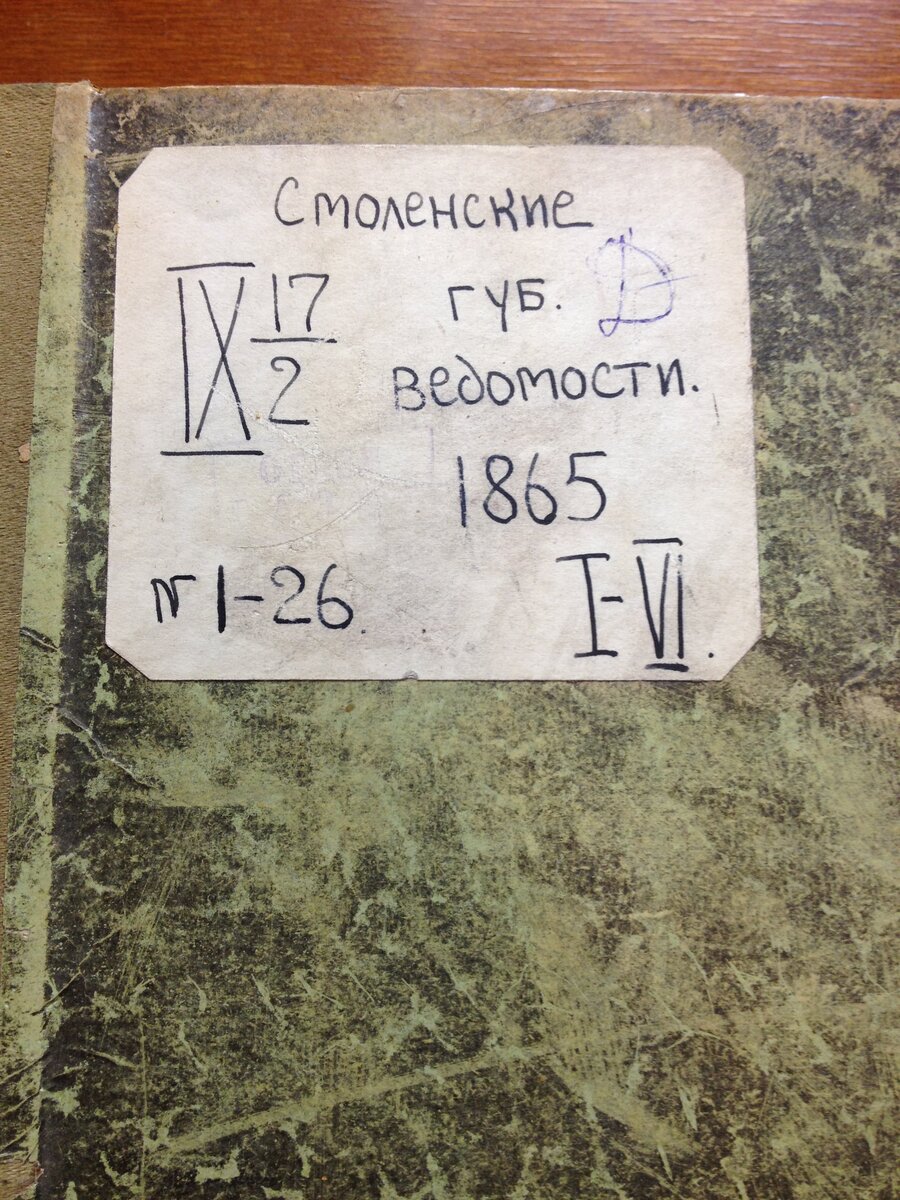 Смоленские
IX 17/2
губ. Д
ведомости.
1865
№ 1-26.
I-VI.